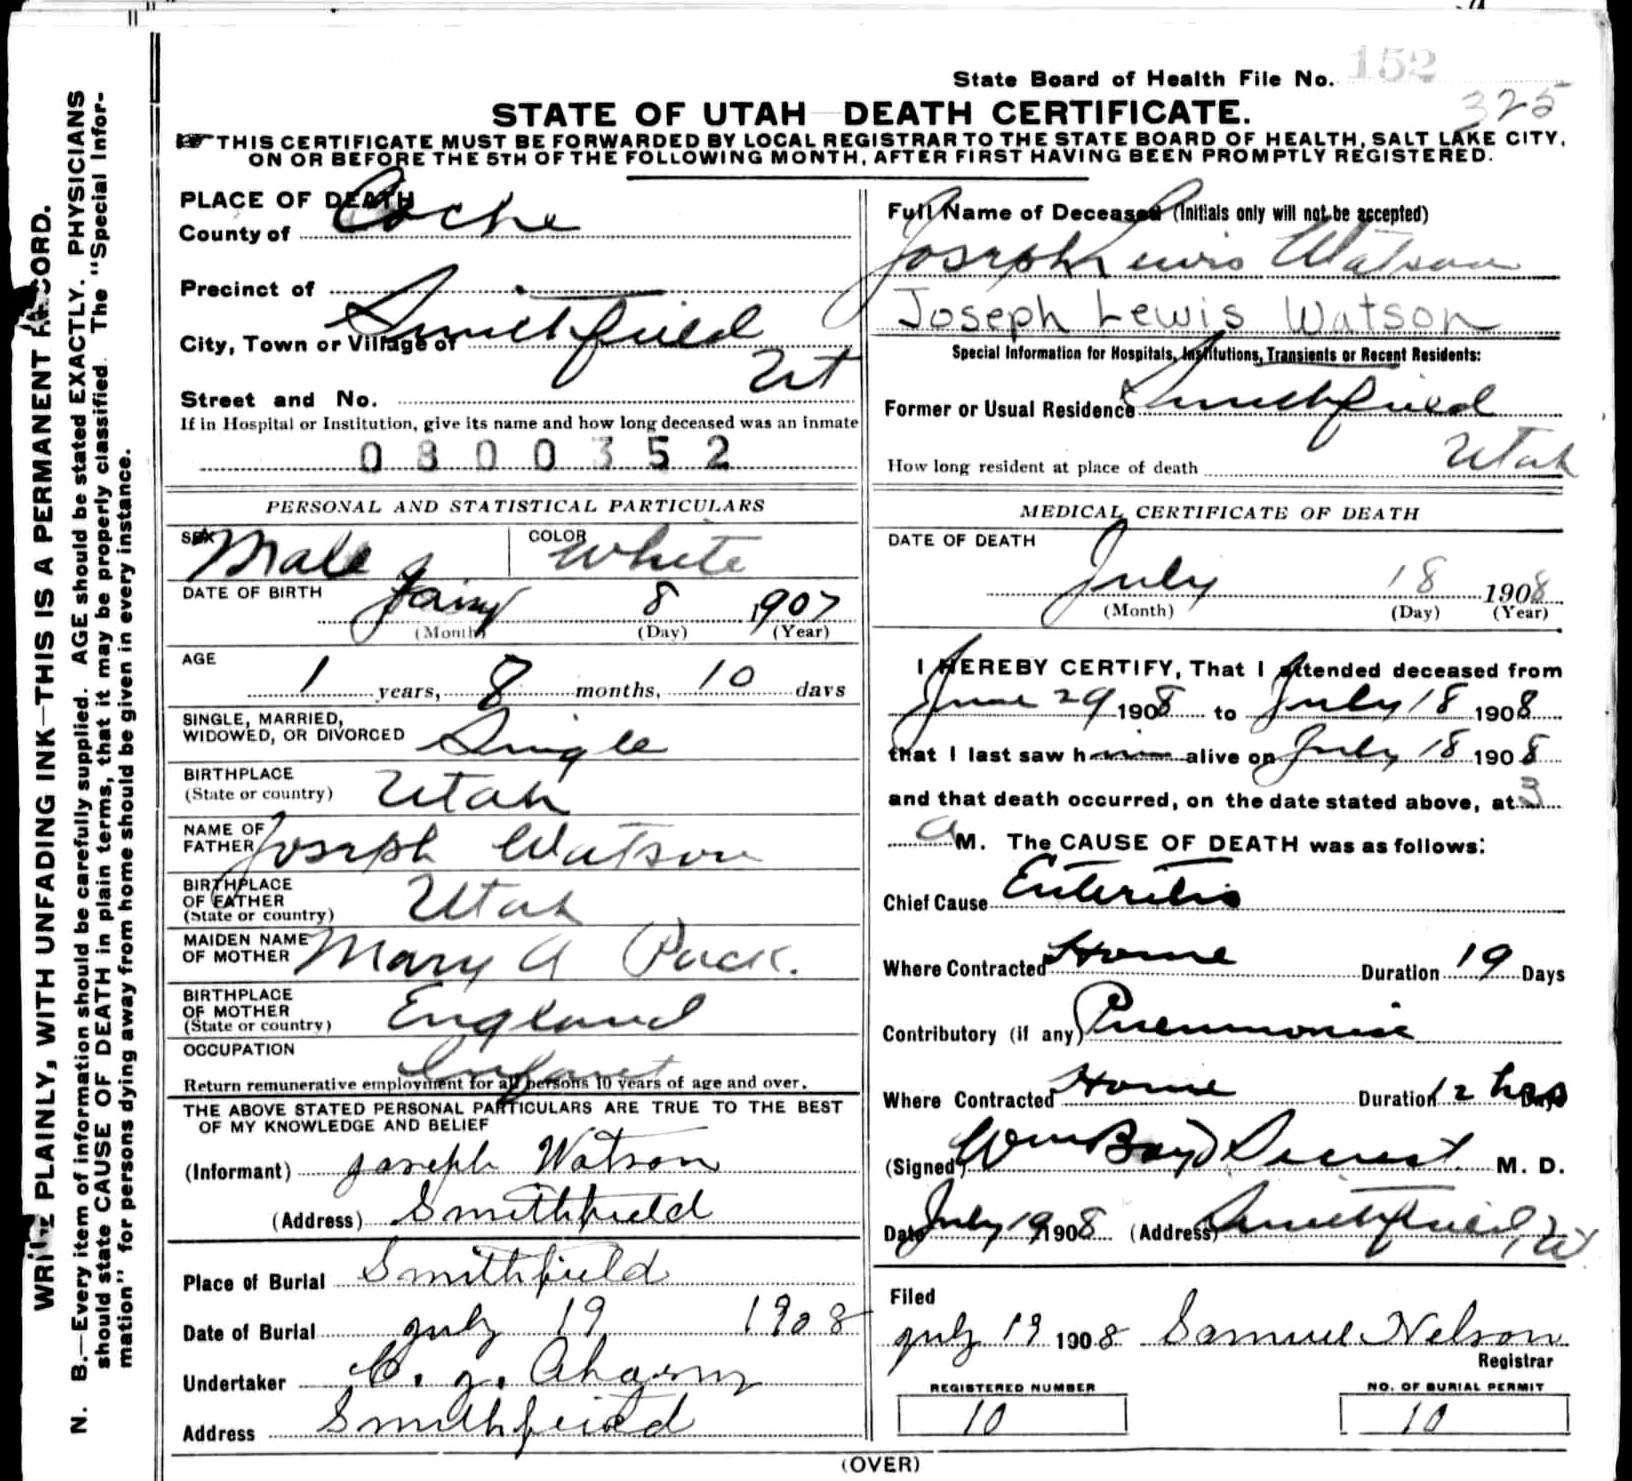 State Board of Health File No. 152
325
STATE OF UTAH DEATH CERTIFICATE.
THIS CERTIFICATE MUST BE FORWARDED BY LOCAL REGISTRAR TO THE STATE BOARD OF HEALTH, SALT LAKE CITY,
ON OR BEFORE THE 5TH OF THE FOLLOWING MONTH, AFTER FIRST HAVING BEEN PROMPTLY REGISTERED.
WRITE PLAINLY, WITH UNFADING INK—THIS IS A PERMANENT RECORD.
N. B.—Every item of information should be carefully supplied. AGE should be stated EXACTLY. PHYSICIANS
should state CAUSE OF DEATH in plain terms, that it may be properly classified. The "Special Infor-
mation" for persons dying away from home should be given in every instance.
PLACE OF DEATH
County of Cache
Precinct of
City, Town or Village of Smithfield
Ut
Street and No.
If in Hospital or Institution, give its name and how long deceased was an inmate
0800352
PERSONAL AND STATISTICAL PARTICULARS
SEX Male COLOR White
DATE OF BIRTH 8 1907
(Month) (Day) (Year)
AGE 1 years, 8 months, 10 days
SINGLE, MARRIED,
WIDOWED, OR DIVORCED Single
BIRTHPLACE
(State or country) Utah
NAME OF
FATHER Joseph Watson
BIRTHPLACE
OF FATHER
(State or country) Utah
MAIDEN NAME
OF MOTHER Mary A Pack.
BIRTHPLACE
OF MOTHER
(State or country) England
OCCUPATION Infant
Return remunerative employment for all persons 10 years of age and over.
THE ABOVE STATED PERSONAL PARTICULARS ARE TRUE TO THE BEST
OF MY KNOWLEDGE AND BELIEF
(Informant) Joseph Watson
(Address) Smithfield
Place of Burial Smithfield
Date of Burial July 19 1908
Undertaker
Address Smithfield
Full Name of Deceased (Initials only will not be accepted)
Joseph Lewis Watson
Joseph Lewis Watson
Special Information for Hospitals, Institutions, Transients or Recent Residents:
Former or Usual Residence Smithfield
Utah
How long resident at place of death
MEDICAL CERTIFICATE OF DEATH
DATE OF DEATH
July 18 1908
(Month) (Day) (Year)
I HEREBY CERTIFY, That I attended deceased from
June 29 1908 to July 18 1908
that I last saw him alive on July 18 1908
and that death occurred, on the date stated above, at 3
a M. The CAUSE OF DEATH was as follows:
Chief Cause Enteritis
Where Contracted Home Duration 19 Days
Contributory (if any) Pneumonia
Where Contracted Home Duration 12 hrs Days
(Signed) Wm Boyd M. D.
Date July 19 1908 (Address) Smithfield, Ut
Filed
July 19 1908 Samuel Nelson
Registrar
REGISTERED NUMBER
10
NO. OF BURIAL PERMIT
10
(OVER)